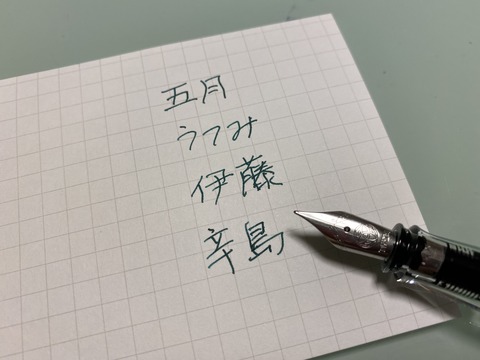 五月
うつみ
伊藤
辛島